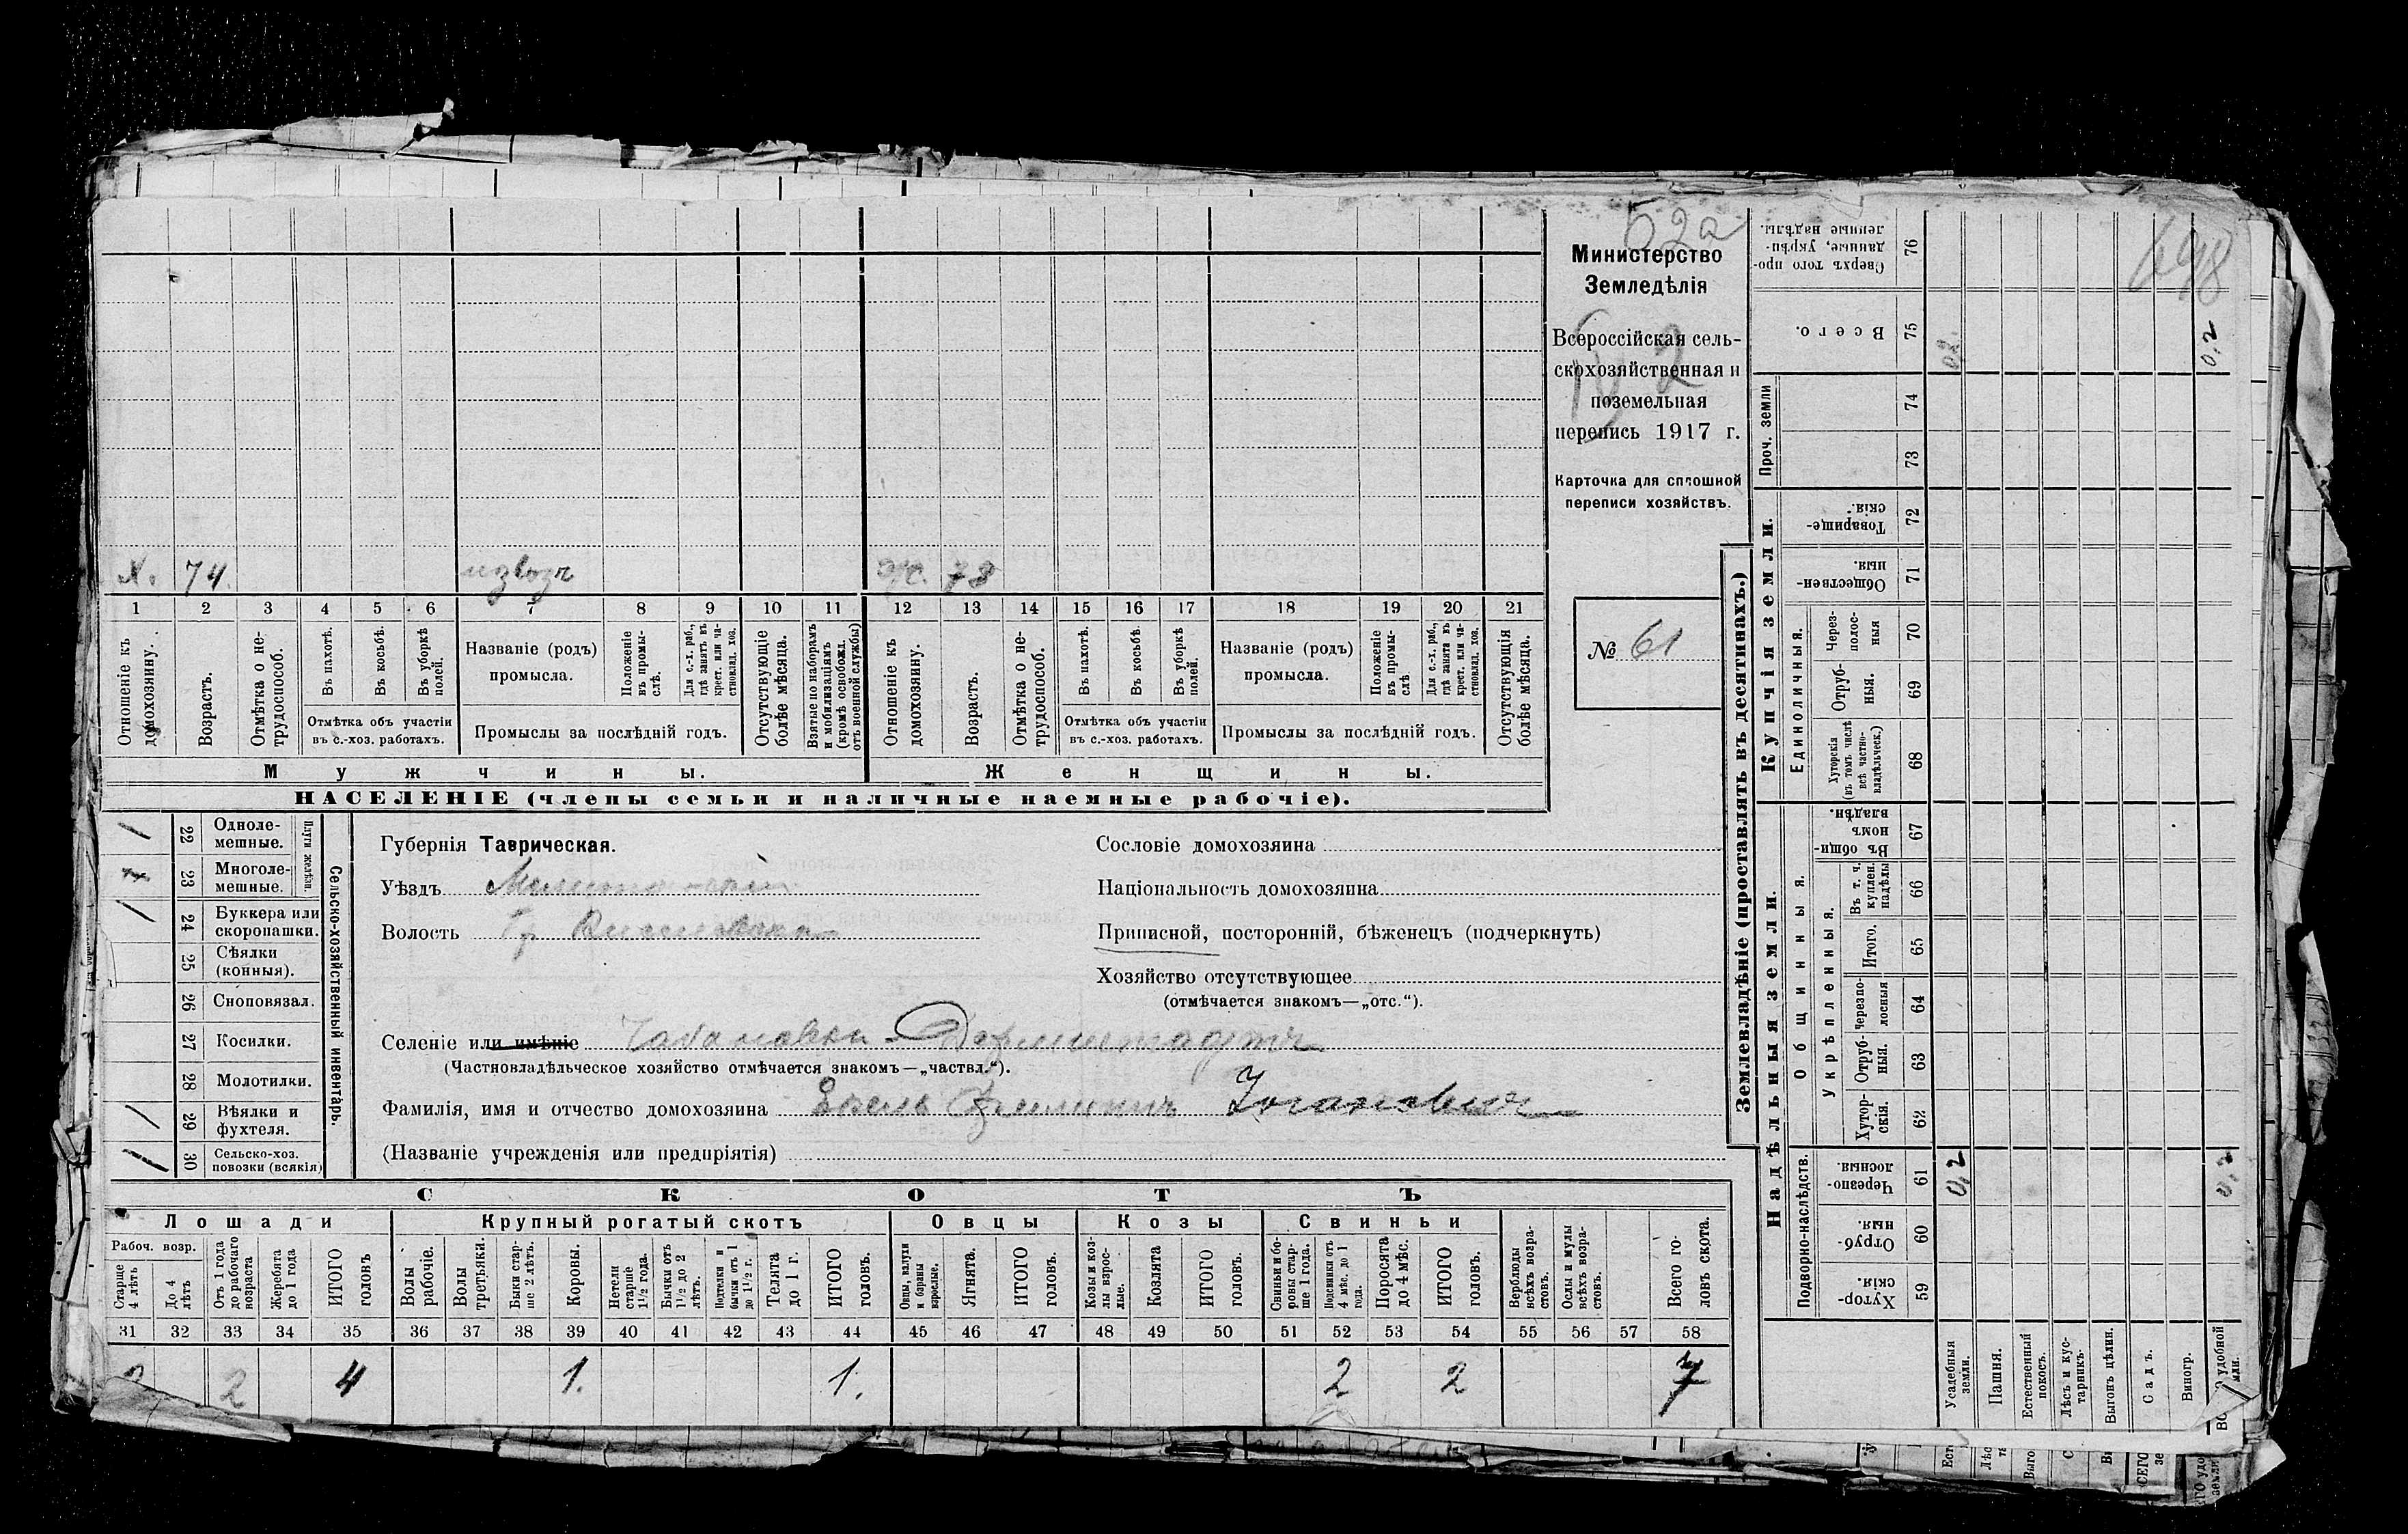 52а
698
Министерство
Земледѣлія
Всероссійская сель-
скохозяйственная и
поземельная
перепись 1917 г.
2
Карточка для сплошной
переписи хозяйствъ.
№ 61
х. 74. извозъ 78
1 2 3 4 5 6 7 8 9 10 11 12 13 14 15 16 17 18 19 20 21
Отношеніе къ домохозяину.
Возрастъ.
Отмѣтка о не-
трудоспособ.
Въ пахотѣ.
Въ косьбѣ.
Въ уборкѣ
полей.
Отмѣтка объ участіи
въ с.-хоз. работахъ.
Названіе (родъ)
промысла.
Положеніе
въ промы-
слѣ.
Для с.-х. раб.,
гдѣ занятъ въ
крест. или ча-
стновлад. хоз.
Промыслы за послѣдній годъ.
Отсутствующіе
болѣе мѣсяца.
Взятые по наборамъ
и мобилизаціямъ
(кромѣ освобожд.
отъ военной службы)
Отношеніе къ
домохозяину.
Возрастъ.
Отмѣтка о не-
трудоспособ.
Въ пахотѣ.
Въ косьбѣ.
Въ уборкѣ
полей.
Отмѣтка объ участіи
въ с.-хоз. работахъ.
Названіе (родъ)
промысла.
Положеніе
въ промы-
слѣ
Для с.-х. раб.,
гдѣ занята въ
крест. или ча-
стновлад. хоз.
Промыслы за послѣдній годъ.
Отсутствующія
болѣе мѣсяца.
Мужчины.
Женщины.
НАСЕЛЕНІЕ (члены семьи и наличные наемные рабочіе).
1 22 Одноле-
мешные.
23 Многоле-
мешные.
Плуги желѣзн.
1 24 Буккера или
скоропашки.
25 Сѣялки
(конныя).
26 Сноповязал.
27 Косилки.
28 Молотилки.
1 1 29 Вѣялки и
фухтеля.
1 1 30 Сельско-хоз.
повозки (всякія)
Сельско-хозяйственный инвентарь.
Губернія Таврическая.
Уѣздъ Мелитопольскій
Волость
Селеніе или имѣніе Чабановка Дармштадтъ
(Частновладѣльческое хозяйство отмѣчается знакомъ—„частвл.“).
Фамилія, имя и отчество домохозяина Іогановичъ
(Названіе учрежденія или предпріятія)
Сословіе домохозяина
Національность домохозяина
Приписной, посторонній, бѣженецъ (подчеркнуть)
Хозяйство отсутствующее
(отмѣчается знакомъ—„отс.“).
СКОТЪ
Лошади
Крупный рогатый скотъ
Овцы
Козы
Свиньи
Рабоч. возр.
Старше
4 лѣтъ
До 4
лѣтъ
Отъ 1 года
до рабочаго
возраста
Жеребята
до 1 года
ИТОГО
головъ
Волы
рабочіе.
Волы
третьяки.
Быки стар-
ше 2 лѣтъ.
Коровы.
Нетели
старше
1½ года.
Бычки отъ
1½ до 2
лѣтъ.
Подтелки и
бычки отъ 1
до 1½ г.
Телята
до 1 г.
ИТОГО
головъ.
Овцы, валухи
и бараны
взрослые.
Ягнята.
ИТОГО
головъ.
Козы и коз-
лы взрос-
лые.
Козлята
ИТОГО
головъ.
Свиньи и бо-
ровы стар-
ше 1 года.
Подсвинки отъ
4 мѣс. до 1
года.
Поросята
до 4 мѣс.
ИТОГО
головъ.
Верблюды
всѣхъ возра-
стовъ.
Ослы и мулы
всѣхъ возра-
стовъ.
Всего го-
ловъ скота.
31 32 33 34 35 36 37 38 39 40 41 42 43 44 45 46 47 48 49 50 51 52 53 54 55 56 57 58
2 2 4 1. 1. 2 2 7
Землевладѣніе (проставлять въ десятинахъ.)
Купчія земли.
Надѣльныя земли.
Сверхъ того про-
данные, укрѣп-
ленные надѣлы. 76
Всего. 75 0,2. 0,2
Проч. земли
74
73
Товарище-
скія. 72
Обществен-
ныя. 71
Единоличныя.
Через-
полос-
ныя 70
Отруб-
ныя. 69
Хуторскія
(въ томъ числѣ
всѣ частно-
владѣльческ.) 68
Общинныя.
Въ общин-
номъ
владѣн. 67
Укрѣпленныя.
Въ т. ч.
куплен.
надѣлы 66
Итого. 65
Черезпо-
лосныя 64
Отруб-
ныя. 63
Хутор-
скія. 62
Подворно-наслѣдств.
Черезпо-
лосныя. 61 0,2 0,2
Отруб-
ныя. 60
Хутор-
скія. 59
Усадебныя
земли.
Пашня.
Естественный
покосъ.
Лѣсъ и кус-
тарникъ.
Выгонъ цѣлин.
Садъ.
Виногр.
удобной